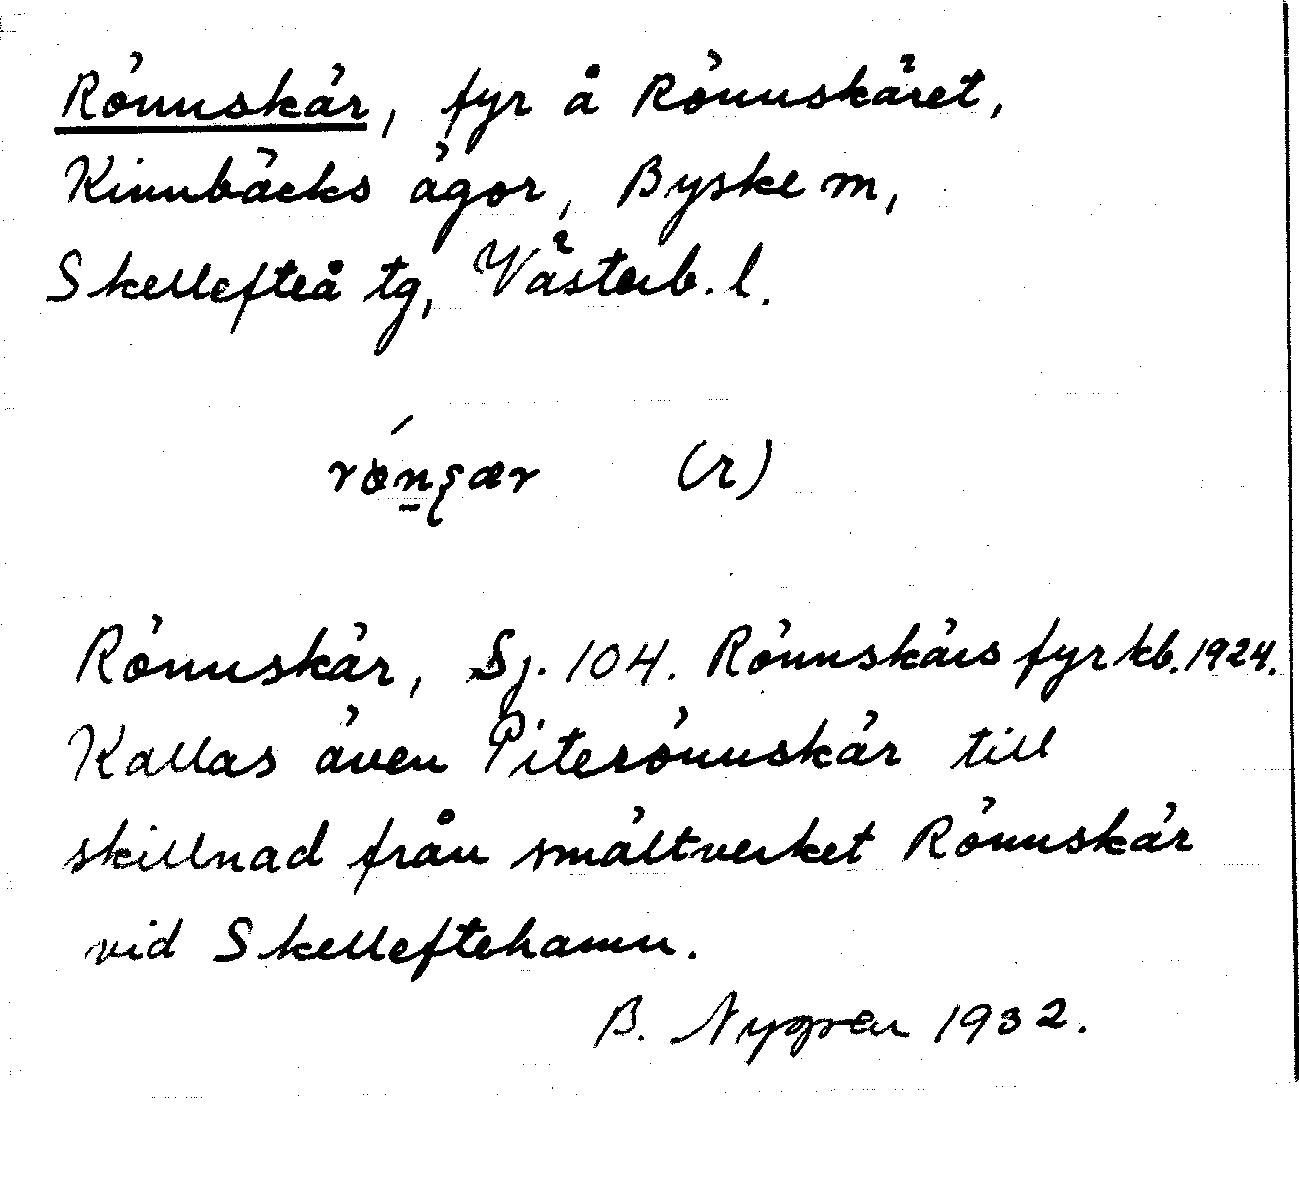 Rönnskär, fyr å Rönnskäret,
Kinnbäcks ägor, Byske m,
Skellefteå tg, Västerb. l.
(r)
Rönnskär, Sj. 104. Rönnskärs fyr kb. 1924.
Kallas även Piterönnskär till
skillnad från smältverket Rönnskär
vid Skelleftehamn.
B. Nygren 1932.